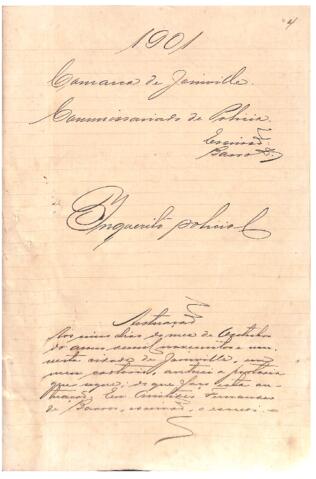 4
1901
Comarca de Joinville.
Commissariado de Policia.
Escrivão
Barros
Inquerito policial
Autuação
Aos cinco dias do mez de Outubro
do anno de mil novecentos e um,
nesta cidade de Joinville, em
meu cartorio, autuei a portaria
que segue, do que faço esta au-
tuação. Eu Fernandes
de Barros, escrivão, o escrevi